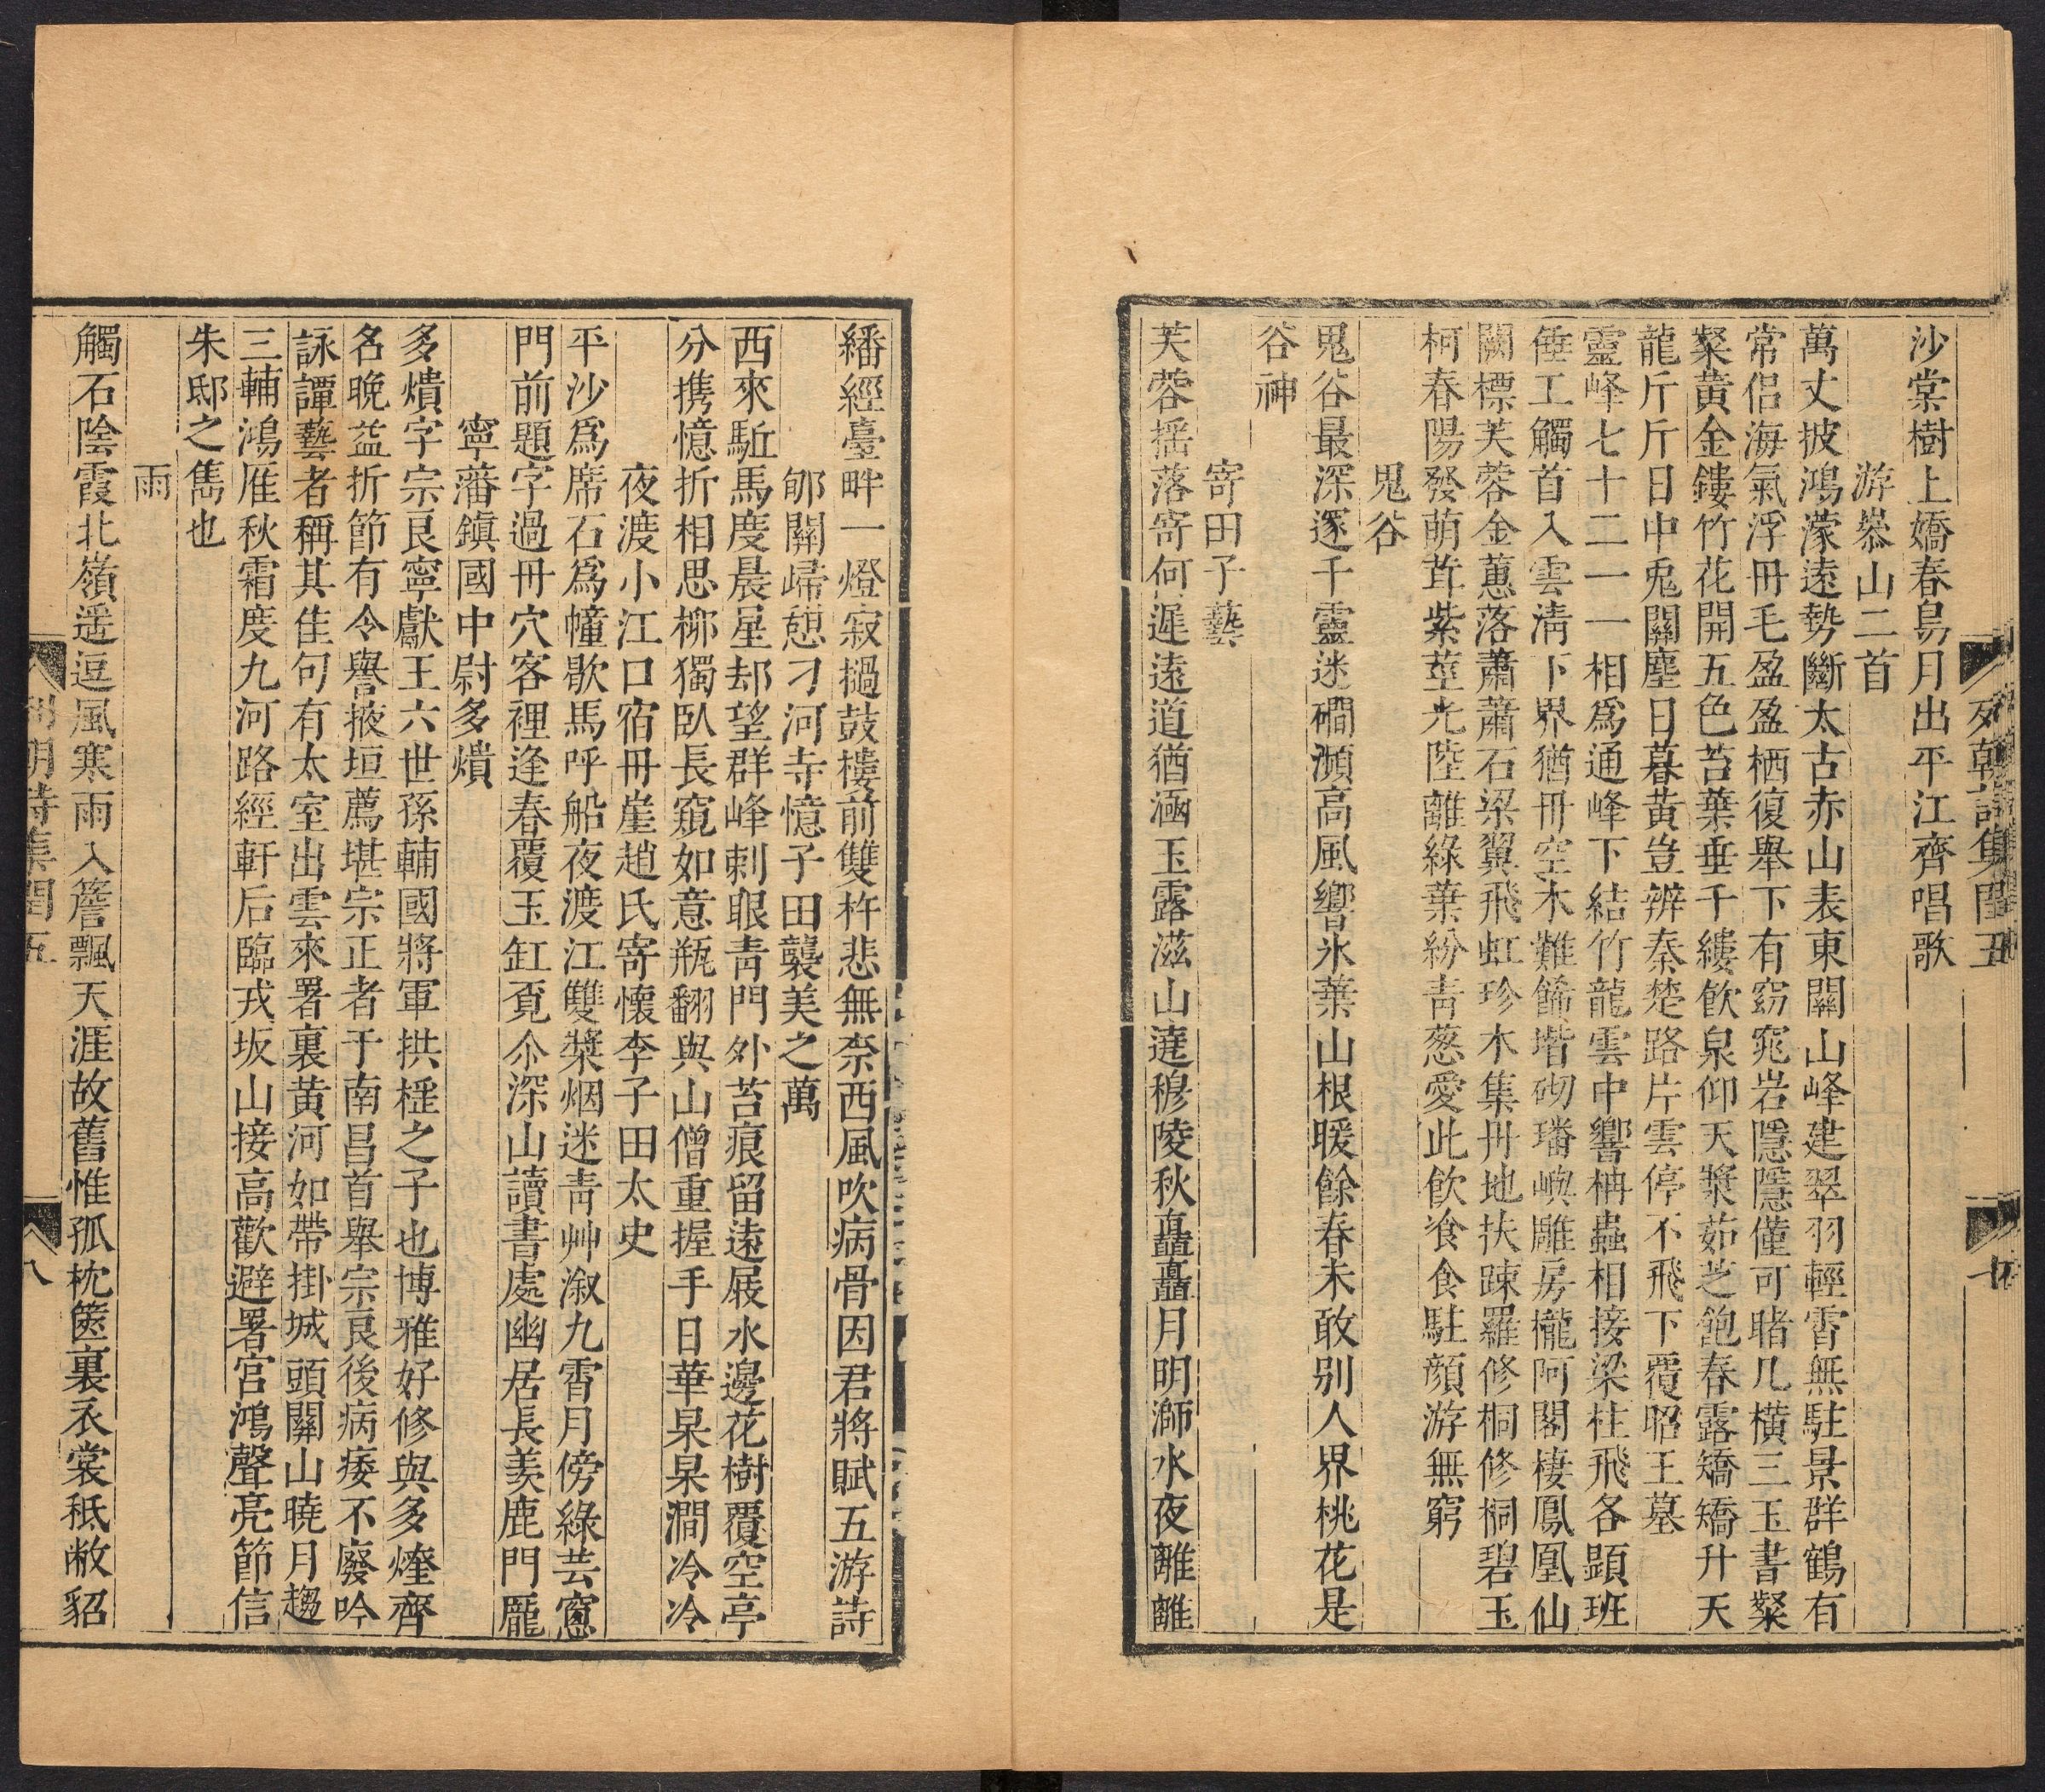 列朝詩集閏五
沙棠樹上嬌春鳥月出平江齊唱歌
游㟭山二首
萬丈披鴻濛遠勢斷太古赤山表東關山峰建翠羽輕霄無駐景群鶴有
常侶海氣浮冊毛盈盈栖復舉下有窈窕岩隱隱僅可睹几橫三玉書粲
粲黃金鏤竹花開五色苔葉垂千縷飲泉仰天漿茹芝飽春露矯矯升天
龍斤斤日中兎關塵日暮黃豈辨秦楚路片雲停不飛下覆昭王墓
靈峰七十二一一相爲通峰下結竹龍雲中響柟蟲相接梁柱飛各顕班
倕工觸首入雲淸下界猶冊空木難餙堦砌璠嶼雕房櫳阿閣棲鳳凰仙
闕標芙蓉金蕙落蕭蕭石梁翼飛虹珍木集冊地扶踈羅修桐修桐碧玉
柯春陽發萌茸紫莖光陸離綠葉紛靑葱愛此飲飡食駐顔游無窮
鬼谷
鬼谷最深邃千靈迷磵瀕高風響氷葉山根暖餘春未敢别人界桃花是
谷神
寄田子藝
芙蓉揺落寄何遲遠道猶涵玉露滋山遶穆陵秋矗矗月明溮水夜離離
繙經臺畔一燈寂撾鼓樓前雙杵悲無奈西風吹病骨因君將賦五游詩
郇關歸憩刁河寺憶子田襲美之萬
西來駈馬度晨星却望群峰刺眼靑門外苔痕留遠屐水邊花樹覆空亭
分携憶折相思栁獨臥長窺如意瓶翻與山僧重握手日華杲杲澗冷冷
夜渡小江口宿冊崖趙氏寄懷李子田太史
平沙爲席石爲幢歇馬呼船夜渡江雙槳烟迷靑艸溆九霄月傍綠芸窻
門前題字過冊穴客裡逢春覆玉缸覔尒深山讀書處幽居長羨鹿門龎
寧藩鎭國中尉多熿
多熿字宗良寧獻王六世孫輔國將軍拱樦之子也博雅好修與多煃齊
名晚益折節有令譽掖垣薦堪宗正者于南昌首舉宗良後病痿不廢吟
詠譚藝者稱其佳句有太室出雲來署裏黃河如帶掛城頭關山曉月趨
三輔鴻雁秋霜度九河路經軒后臨戎坂山接高歡避署宮鴻聲亮節信
朱邸之雋也
雨
觸石陰霞北嶺遥逗風寒雨入簷飄天涯故舊惟孤枕篋裏衣裳秪敝貂
列朝詩集閏五
八